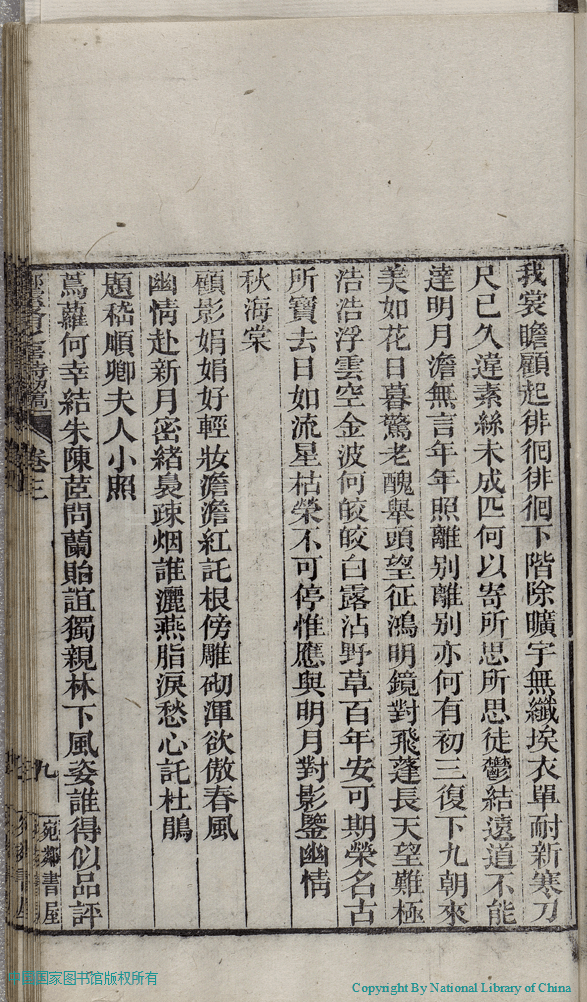 我裳瞻顧起徘徊徘徊下階除曠宇無纖埃衣單耐新寒刀
尺已久違素絲未成匹何以寄所思所思徒鬱結遠道不能
達明月澹無言年年照離别離别亦何有初三復下九朝來
美如花日暮驚老醜舉頭望征鴻明鏡對飛蓬長天望難極
浩浩浮雲空金波何皎皎白露沾野草百年安可期榮名古
所寶去日如流星枯榮不可停惟應與明月對影鑒幽情
秋海棠
顧影娟娟好輕妝澹澹紅託根傍雕砌渾欲傲春風
幽情赴新月密緒裊疎烟誰灑燕脂淚愁心託杜鵑
題嵇順卿夫人小照
蔦蘿何幸結朱陳茝問蘭貽誼獨親林下風姿誰得似品評
卷三
九
宛鄰書屋
中国国家图书馆版权所有
Copyright By National Library of China